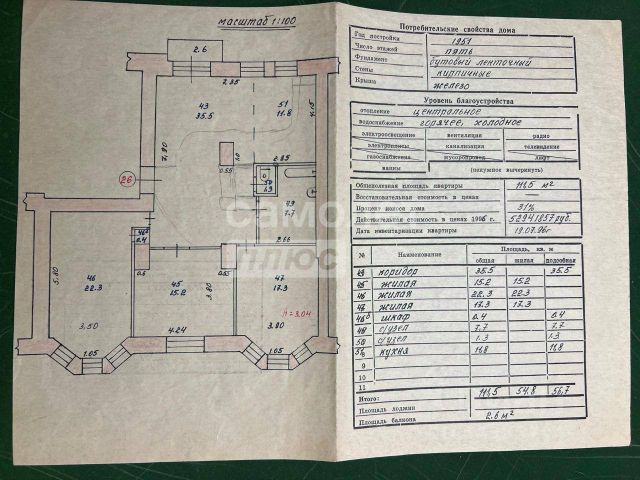 масштаб 1:100
2.6
2.35
43
35.5
51
11.8
4.15
7.90
0.55
2.85
50
1.3
49
7.7
2.66
26
46а
0.4
0.6
0.55
5.80
46
22.3
45
15.2
3.80
47
17.3
h=3.04
3.50
4.24
3.80
1.05
1.05
САМО
ПЛЮС
Потребительские свойства дома
Год постройки 1951
Число этажей пять
Фундамент бутовый ленточный
Стены кирпичные
Крыша железо
Уровень благоустройства
отопление центральное
водоснабжение горячее, холодное
электроосвещение вентиляция радио
электроплиты канализация телевидение
газоснабжение мусоропровод лифт
ванны (ненужное вычеркнуть)
Общеполезная площадь квартиры 111,5 м²
Восстановительная стоимость в ценах
Процент износа дома 31%
Действительная стоимость в ценах 1996 г. 52941857 руб.
Дата инвентаризации квартиры 19.07.96г
№ Наименование Площадь, кв. м
общая жилая подсобная
43 коридор 35.5 35.5
45 жилая 15.2 15.2
46 жилая 22.3 22.3
47 жилая 17.3 17.3
46а шкаф 0.4 0.4
49 с/узел 7.7 7.7
50 с/узел 1.3 1.3
51 кухня 11.8 11.8
9
10
11
Итого: 111,5 54.8 56,7
Площадь лоджии
Площадь балкона 2.6 м²